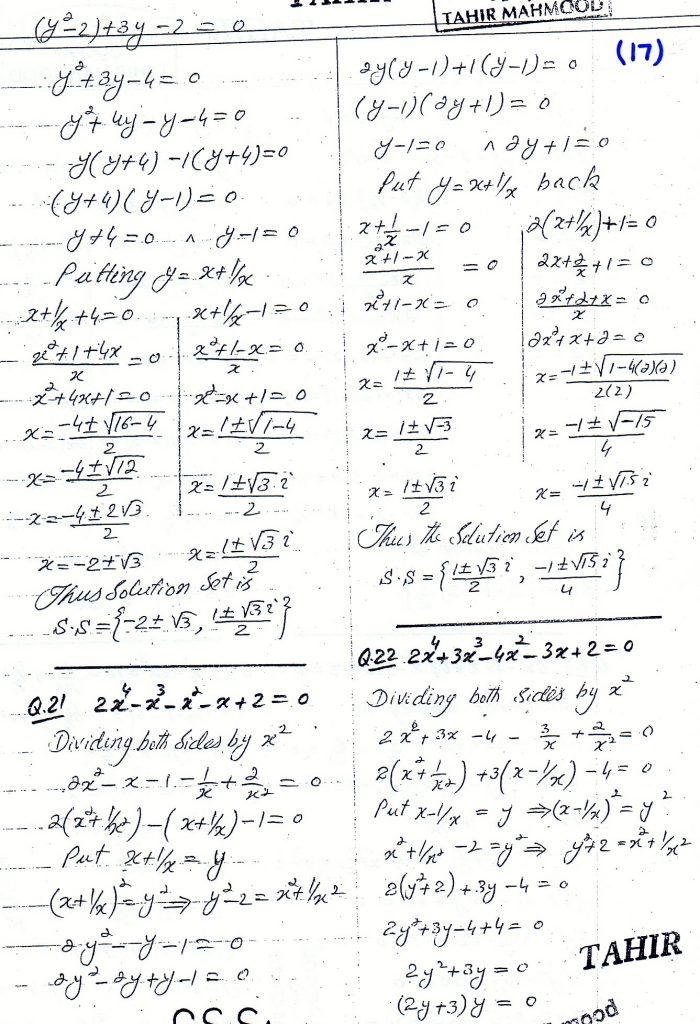 TAHIR MAHMOOD
(17)
(y²-2)+3y-2 = 0
y²+3y-4 = 0
y²+4y-y-4=0
y(y+4)-1(y+4)=0
(y+4)(y-1)=0
y+4=0 ∧ y-1=0
Putting y=x+1/x
x+1/x+4=0 x+1/x-1=0
x²+1+4x/x=0 x²+1-x/x=0
x²+4x+1=0 x²-x+1=0
x=-4±√16-4/2 x=1±√1-4/2
x=-4±√12/2 x=1±√3 i/2
x=-4±2√3/2
x=-2±√3 x=1±√3 i/2
Thus Solution Set is
S.S={-2±√3, 1±√3i/2}
Q.21 2x⁴-x³-x²-x+2=0
Dividing both sides by x²
2x²-x-1-1/x+2/x²=0
2(x²+1/x²)-(x+1/x)-1=0
Put x+1/x=y
(x+1/x)²=y²⇒y²-2=x²+1/x²
2y²--y-1=0
2y²-2y+y-1=0
2y(y-1)+1(y-1)=0
(y-1)(2y+1)=0
y-1=0 ∧ 2y+1=0
Put y=x+1/x back
x+1/x-1=0 2(x+1/x)+1=0
x²+1-x/x=0 2x+2/x+1=0
x²+1-x=0 2x²+2+x/x=0
x²-x+1=0 2x²+x+2=0
x=1±√1-4/2 x=-1±√1-4(2)(2)/2(2)
x=1±√-3/2 x=-1±√-15/4
x=1±√3 i/2 x=-1±√15 i/4
Thus the Solution Set is
S.S={1±√3 i/2, -1±√15 i/4}
Q.22 2x⁴+3x³-4x²-3x+2=0
Dividing both sides by x²
2x²+3x-4-3/x+2/x²=0
2(x²+1/x²)+3(x-1/x)-4=0
Put x-1/x=y⇒(x-1/x)²=y²
x²+1/x²-2=y²⇒y²+2=x²+1/x²
2(y²+2)+3y-4=0
2y²+3y-4+4=0
2y²+3y=0
(2y+3)y=0
TAHIR